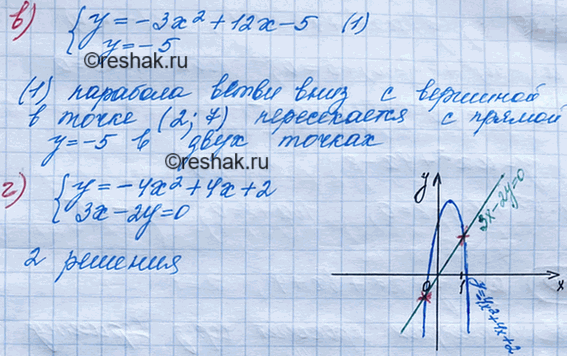 в) { y = -3x² + 12x - 5 (1)
y = -5
©reshak.ru
(1) парабола ветви вниз с вершиной
в точке (2; 7) пересекается с прямой
y = -5 в двух точках
©reshak.ru
г) { y = -4x² + 4x + 2
3x - 2y = 0
2 решения
y
3x - 2y = 0
0
1
x
y = -4x² + 4x + 2